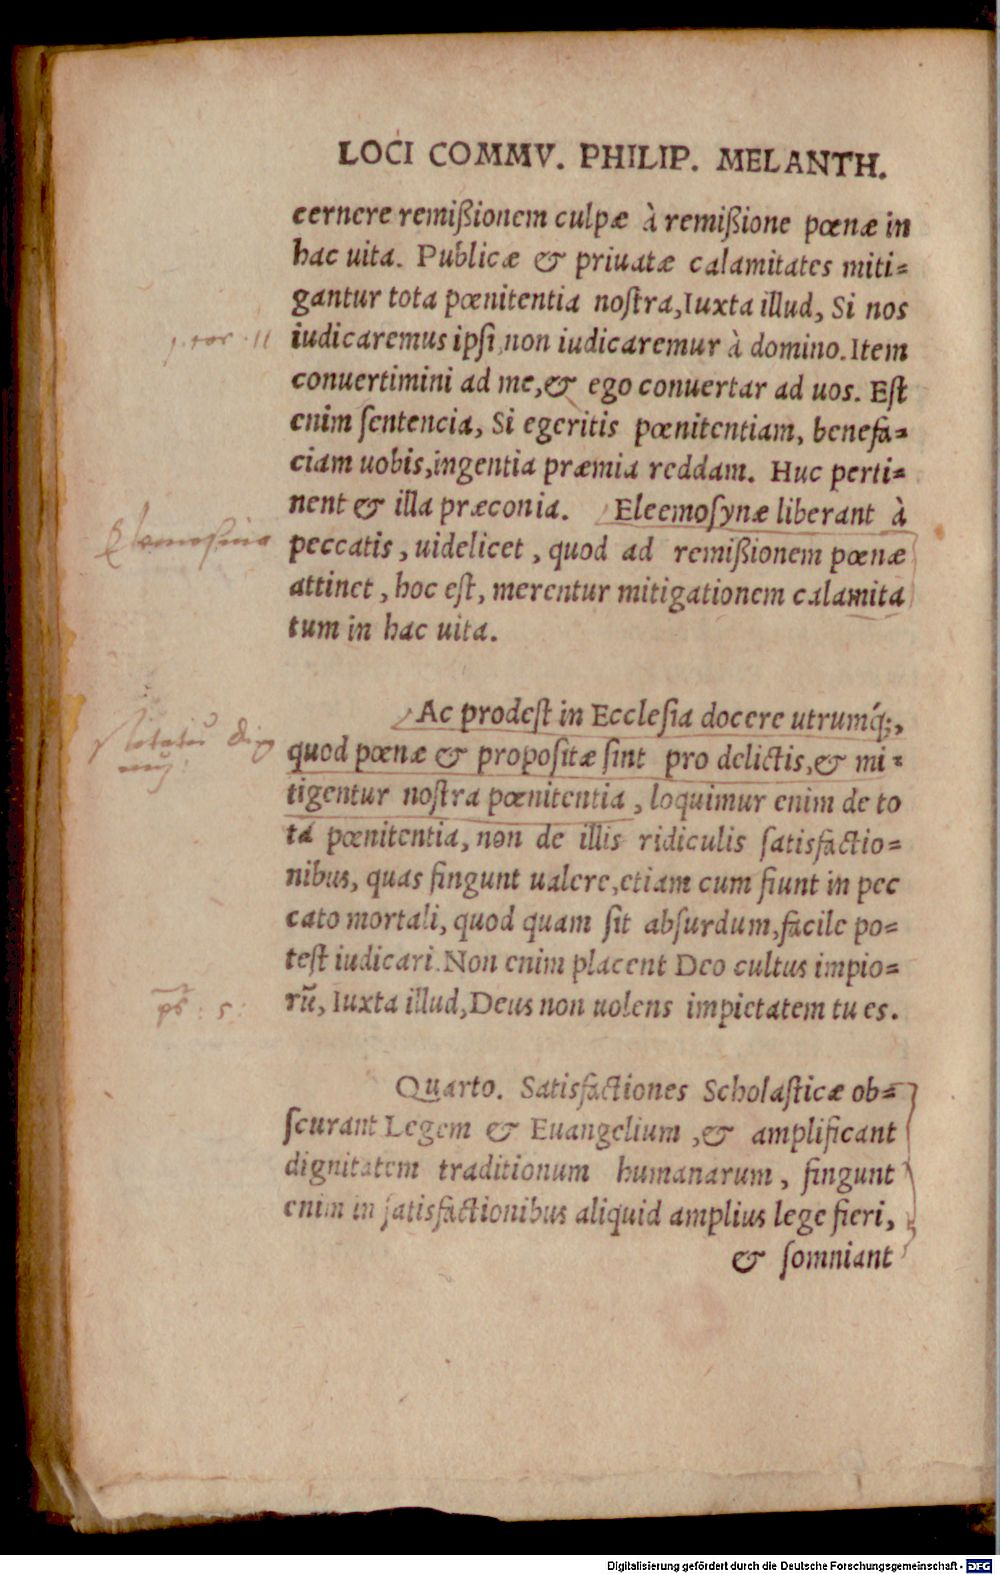 LOCI COMMV. PHILIP. MELANTH.
cernere remißionem culpæ à remißione pœnæ in
hac uita. Publicæ & priuatæ calamitates miti=
gantur tota pœnitentia noſtra, Iuxta illud, Si nos
1. cor. 11
iudicaremus ipſi, non iudicaremur à domino. Item
conuertimini ad me, & ego conuertar ad uos. Eſt
enim ſentencia, Si egeritis pœnitentiam, benefa=
ciam uobis, ingentia præmia reddam. Huc perti=
nent & illa præconia. Eleemoſynæ liberant à
Elemosina
peccatis, uidelicet, quod ad remißionem pœnæ
attinet, hoc eſt, merentur mitigationem calamita
tum in hac uita.
Ac prodeſt in Eccleſia docere utrumq́;,
quod pœnæ & propoſitæ ſint pro delictis, & mi=
tigentur noſtra pœnitentia, loquimur enim de to
ta pœnitentia, non de illis ridiculis ſatisfactio=
nibus, quas fingunt ualere, etiam cum fiunt in pec
cato mortali, quod quam ſit abſurdum, facile po=
teſt iudicari. Non enim placent Deo cultus impio=
ps: 5:
rũ, Iuxta illud, Deus non uolens impietatem tu es.
Quarto. Satisfactiones Scholaſticæ ob=
ſcurant Legem & Euangelium, & amplificant
dignitatem traditionum humanarum, fingunt
enim in ſatisfactionibus aliquid amplius lege fieri,
& ſomniant
Digitalisierung gefördert durch die Deutsche Forschungsgemeinschaft - DFG